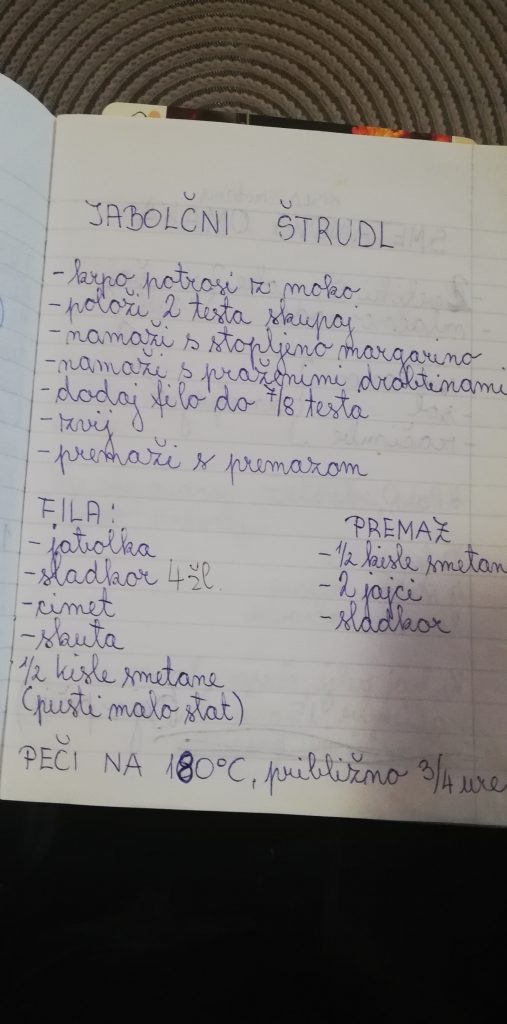 JABOLČNI ŠTRUDL
- krpo potrosi iz moko
- položi 2 testa skupaj
- namaži s stopljeno margarino
- namaži s praženimi drobtinami
- dodaj filo do 7/8 testa
- zvij
- premaži s premazom
FILA:
- jabolka
- sladkor 4žl.
- cimet
- skuta
1/2 kisle smetane
(pusti malo stat)
PREMAZ
- 1/2 kisle smetan
- 2 jajci
- sladkor
PEČI NA 180°C, približno 3/4 ure